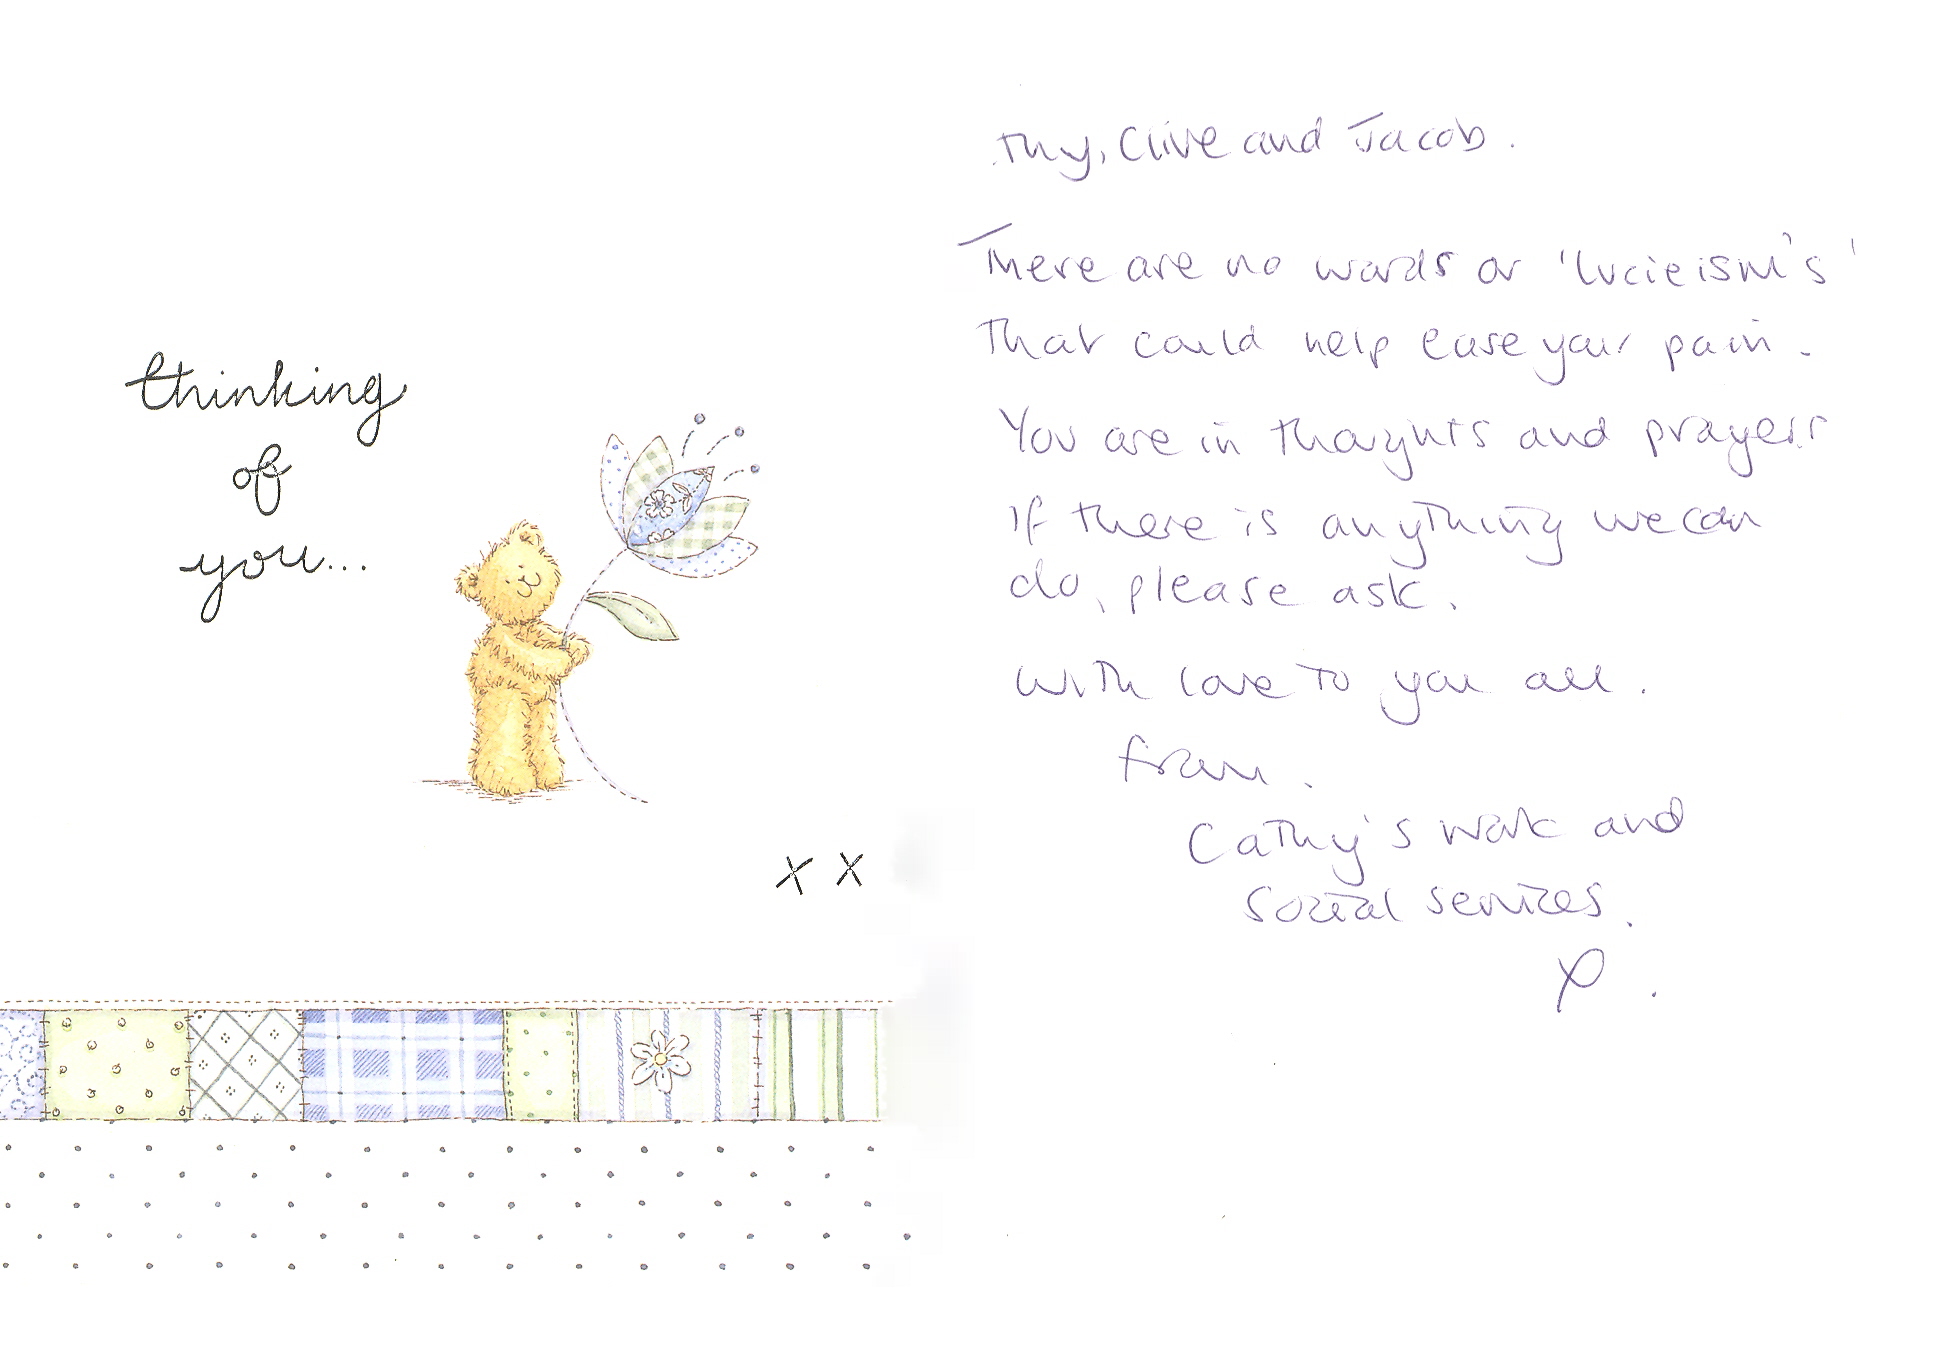 thinking
of
you...
x x
thy, Clive and Jacob.
There are no words or 'lucieism's'
that could help ease your pain.
You are in thoughts and prayers
if there is anything we can
do, please ask.
With love to you all.
from.
Cathy's work and
Social services.
x.